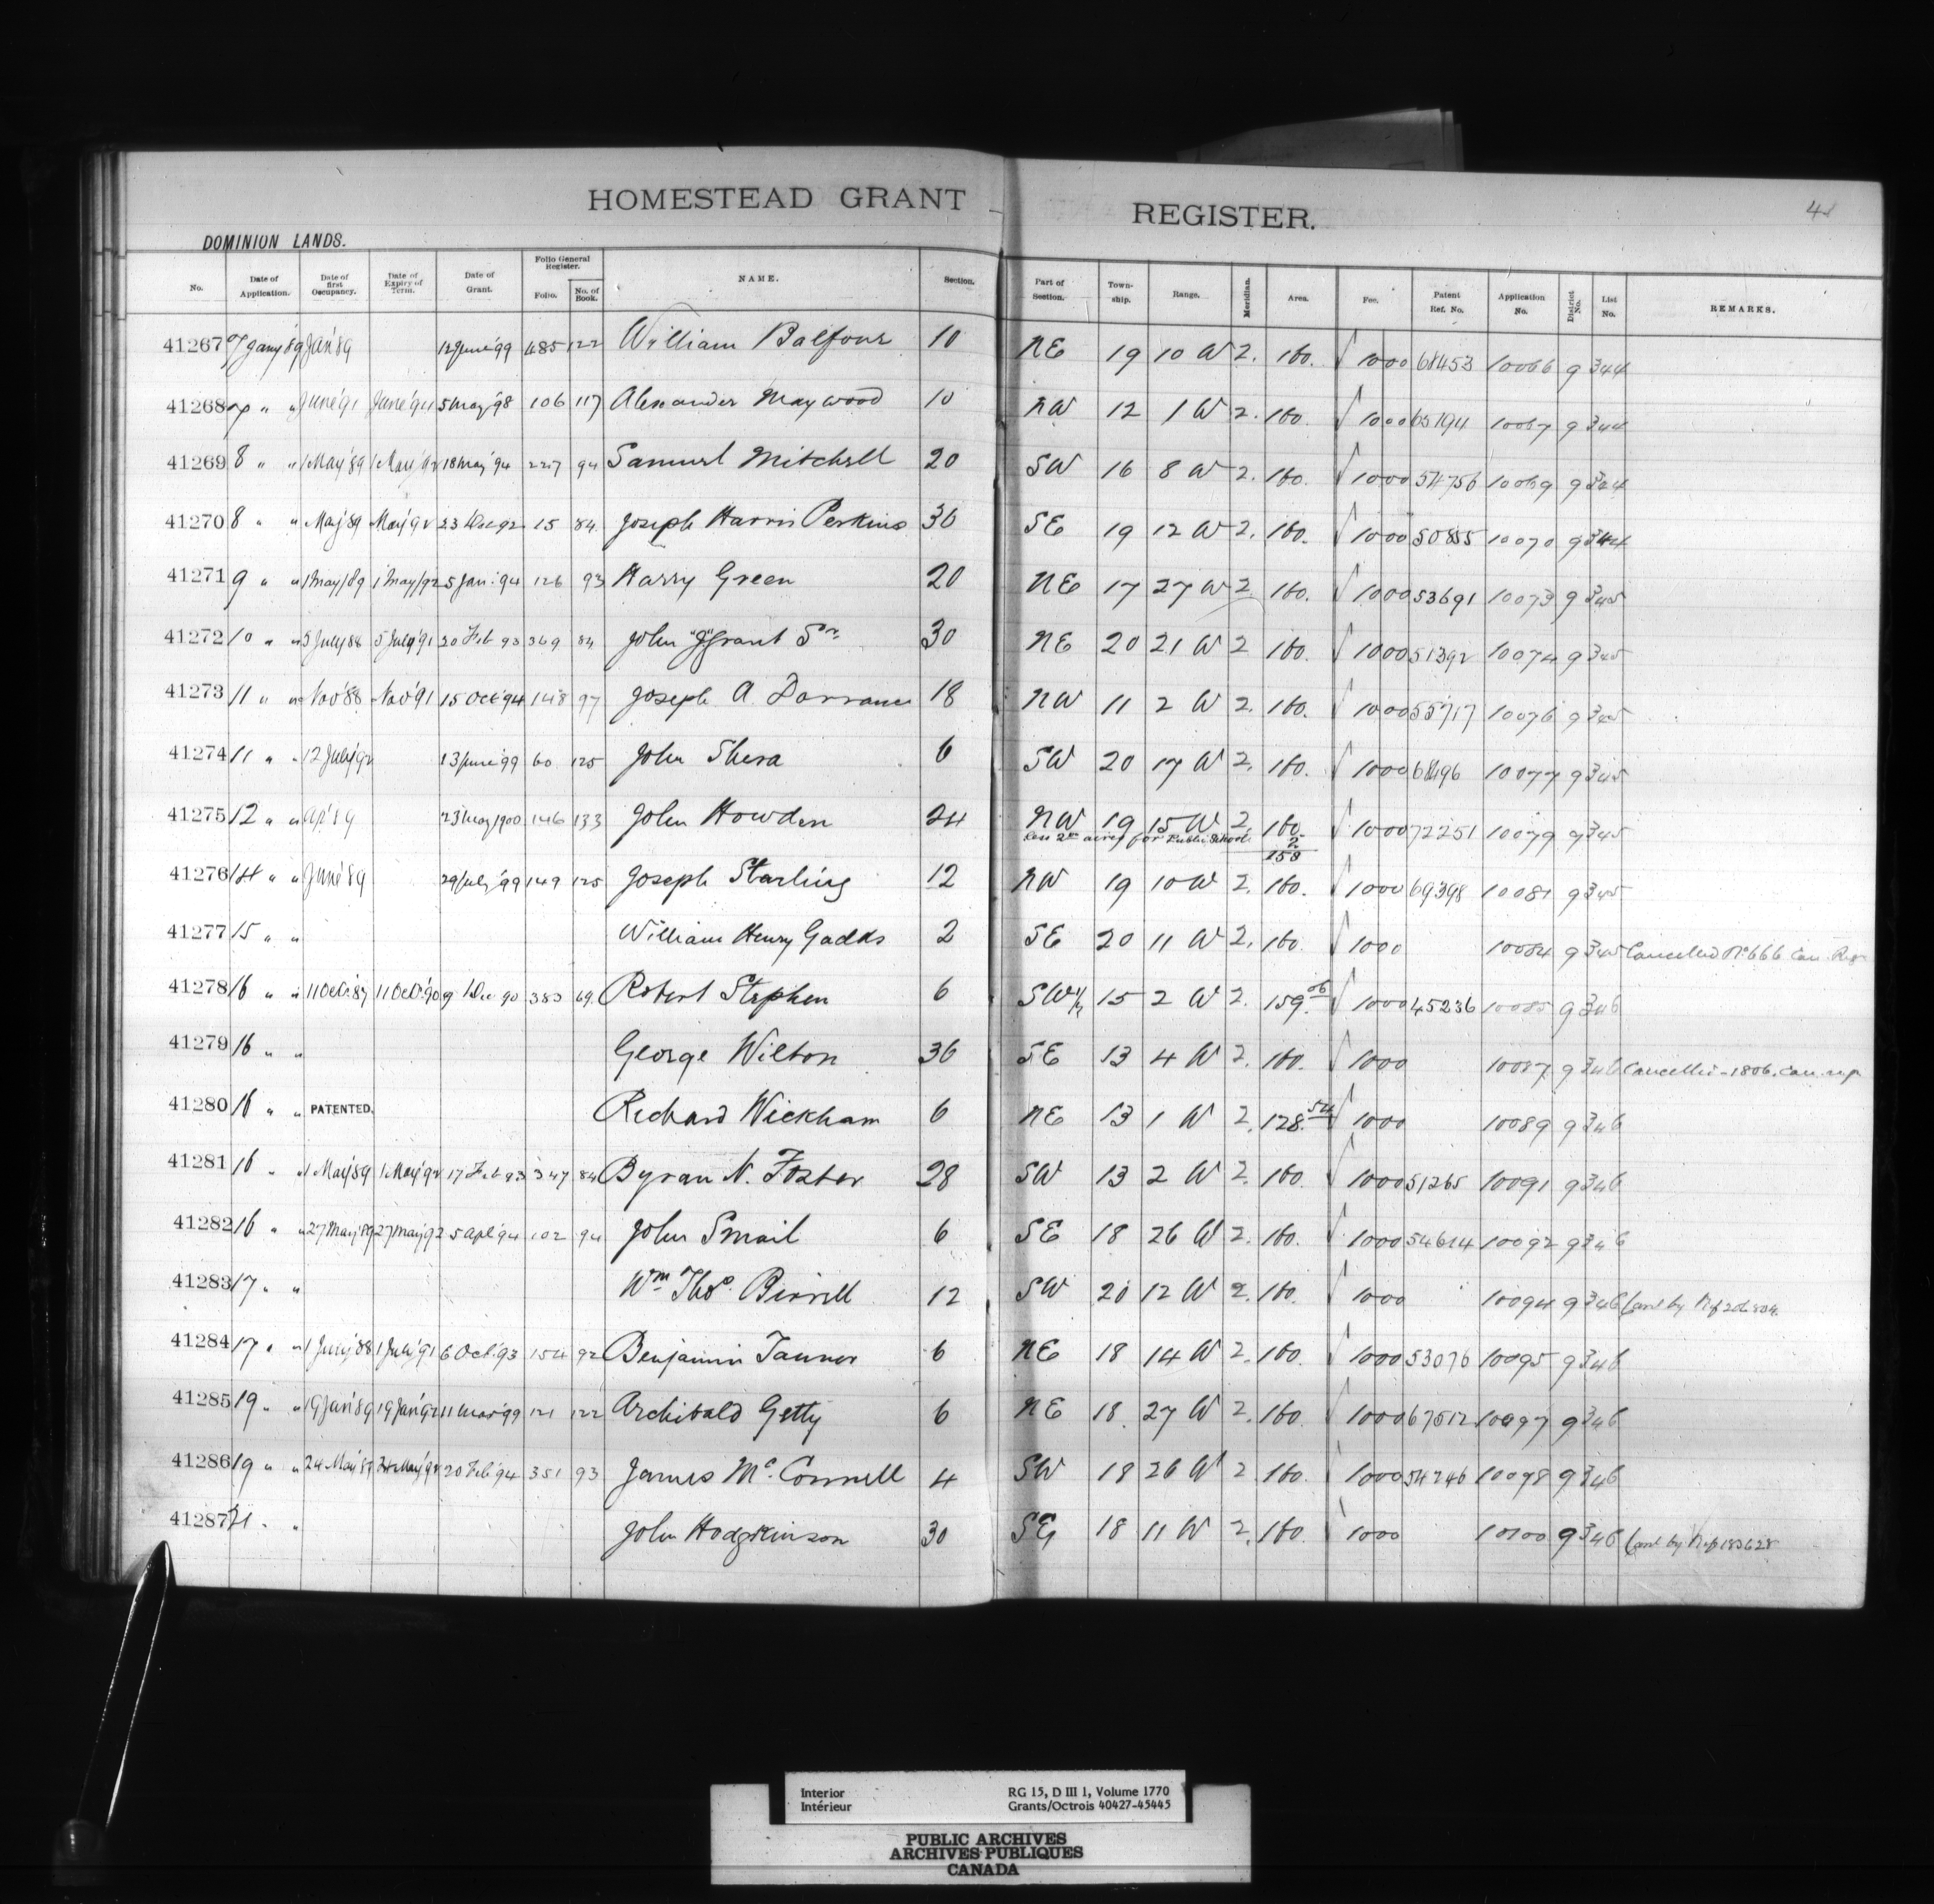 HOMESTEAD GRANT REGISTER.
DOMINION LANDS.
No. Date of Application. Date of first Occupancy. Date of Expiry of Term. Date of Grant. Folio General Register. Folio. No. of Book. NAME. Section. Part of Section. Township. Range. Meridian. Area. Fee. Patent Ref. No. Application No. District No. List No. REMARKS.
41267 7 Jany '89 Jan '89 12 June '99 485 122 William Balfour 10 NE 19 10 W 2. 160. √ 1000 68453 10066 9 344
41268 7 " " June '91 June '94 5 May '98 106 117 Alexander Maywood 10 NW 12 1 W 2. 160. √ 1000 65194 10067 9 344
41269 8 " " 1 May '89 1 May '92 18 May '94 227 94 Samuel Mitchell 20 SW 16 8 W 2. 160. √ 1000 54756 10069 9 344
41270 8 " " May '89 May '92 23 Dec 92 15 84 Joseph Harris Perkins 36 SE 19 12 W 2. 160. √ 1000 50855 10070 9 344
41271 9 " " 1 May /89 1 May /92 5 Jan. 94 126 93 Harry Green 20 NE 17 27 W 2. 160. √ 1000 53691 10073 9 345
41272 10 " " 5 July 88 5 July '91 20 Feb 93 369 84 John "J" Grant Sr. 30 NE 20 21 W 2 160. √ 1000 51392 10074 9 345
41273 11 " " Nov '88 Nov '91 15 Oct '94 148 97 Joseph A. Dorrance 18 NW 11 2 W 2. 160. √ 1000 55717 10076 9 345
41274 11 " " 12 July '92 13 June '99 60 125 John Shera 6 SW 20 17 W 2. 160. √ 1000 68496 10077 9 345
41275 12 " " Ap. '89 23 May 1900 146 133 John Howden 24 NW 19 15 W 2. 160. √ 1000 72251 10079 9 345
Less 2 acres for Public School 2
158
41276 14 " " June '89 29 July '99 149 125 Joseph Starling 12 NW 19 10 W 2. 160. √ 1000 69398 10081 9 345
41277 15 " " William Henry Gadds 2 SE 20 11 W 2. 160. √ 1000 10084 9 345 Cancelled No. 666 Can. Reg.
41278 16 " " 11 Oct. 87 11 Oct. 90 9 Dec 90 383 69 Robert Stephen 6 SW 1/4 15 2 W 2. 159.06 √ 1000 45236 10085 9 346
41279 16 " " George Wilton 36 SE 13 4 W 2. 160. √ 1000 10087 9 346 Cancelled - 1806. Can. reg.
41280 16 " " PATENTED. Richard Wickham 6 NE 13 1 W 2. 128.54 √ 1000 10089 9 346
41281 16 " " 1 May '89 1 May '92 17 Feb 93 347 84 Byran N. Foster 28 SW 13 2 W 2. 160. √ 1000 51265 10091 9 346
41282 16 " " 27 May '89 27 May '92 5 Apl '94 102 94 John Smail 6 SE 18 26 W 2. 160. √ 1000 54614 10092 9 346
41283 17 " " Wm Thos. Birrell 12 SW 20 12 W 2. 160. √ 1000 10094 9 346 Canl by Ref
41284 17 " " 1 July '88 1 July '91 6 Oct. 93 154 92 Benjamin Tanner 6 NE 18 14 W 2. 160. √ 1000 53076 10095 9 346
41285 19 " " 19 Jan '89 19 Jan '92 11 Mar '99 121 122 Archibald Getty 6 NE 18. 27 W 2. 160. √ 1000 67512 10097 9 346
41286 19 " " 24 May '89 24 May '92 20 Feb '94 351 93 James McConnell 4 SW 18 26 W 2 160. √ 1000 54246 10098 9 346
41287 21 " " John Hodgkinson 30 SE 18 11 W 2. 160. √ 1000 10100 9 346 Canl by Ref 183628
Interior RG 15, D III 1, Volume 1770
Intérieur Grants/Octrois 40427-45445
PUBLIC ARCHIVES
ARCHIVES PUBLIQUES
CANADA